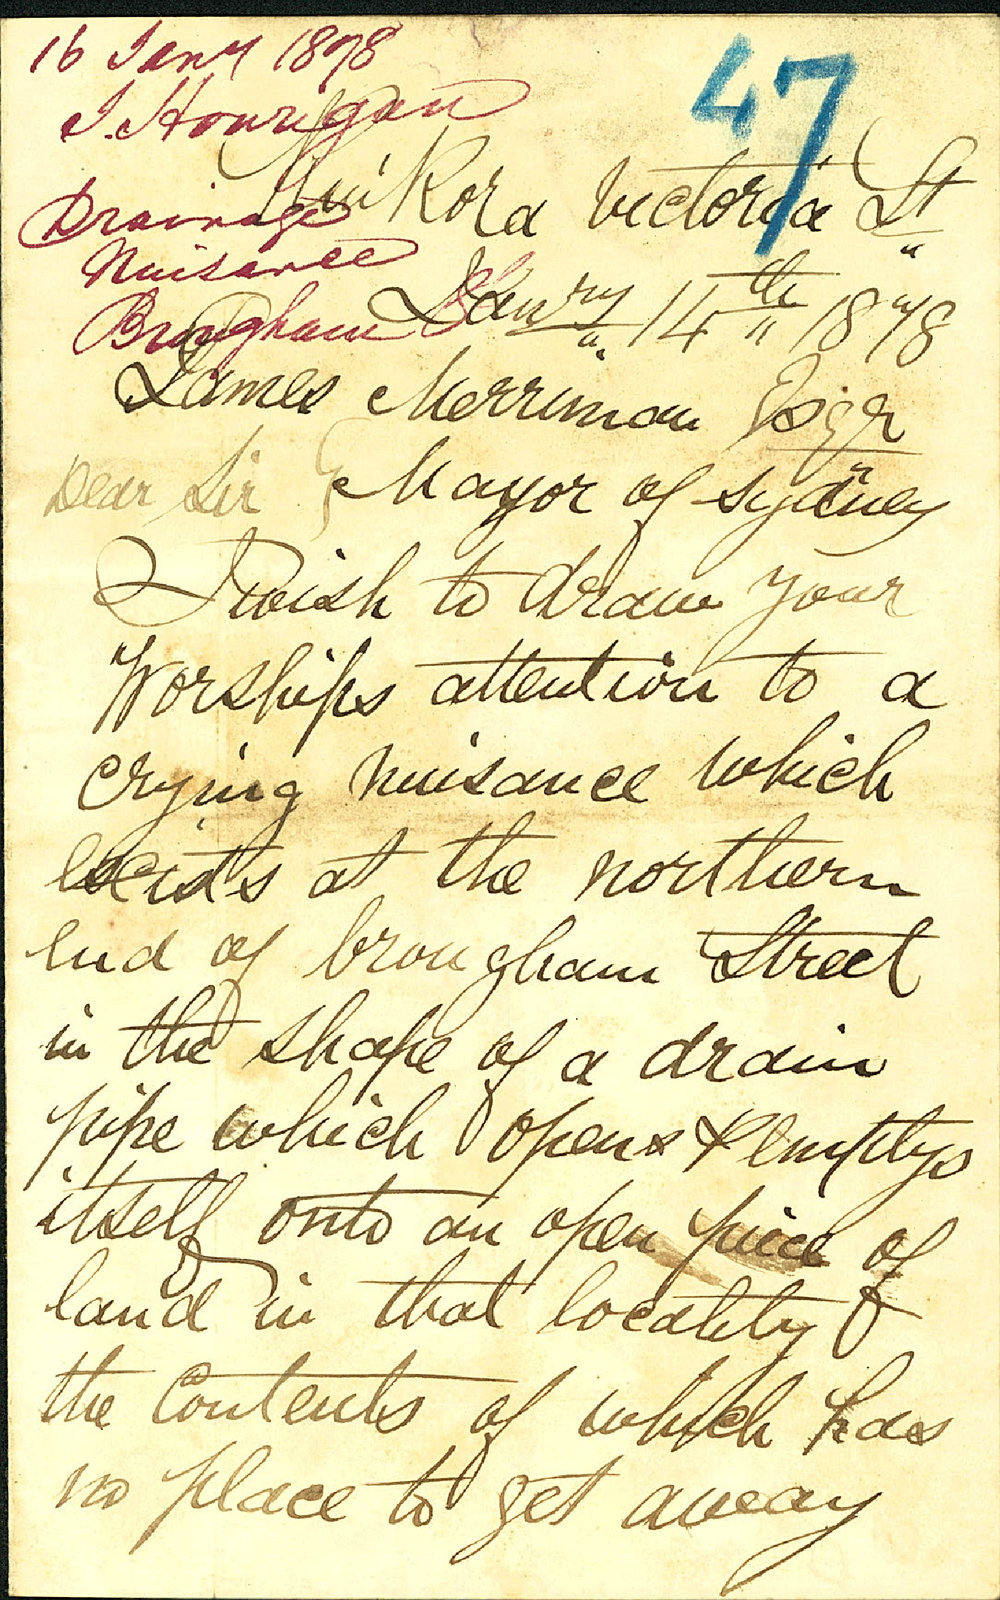 16 Jany 1878
J. Hourigan
Drainage
Nuisance
Brougham St
47
Kora Victoria St
Janry 14th 1878
James Merriman Esqr
Mayor of Sydney
Dear Sir
I wish to draw your
Worships attention to a
crying nuisance which
exists at the northern
end of brougham Street
in the shape of a drain
pipe which opens & emptys
itself onto an open piece of
land in that locality
the Contents of which has
no place to get away